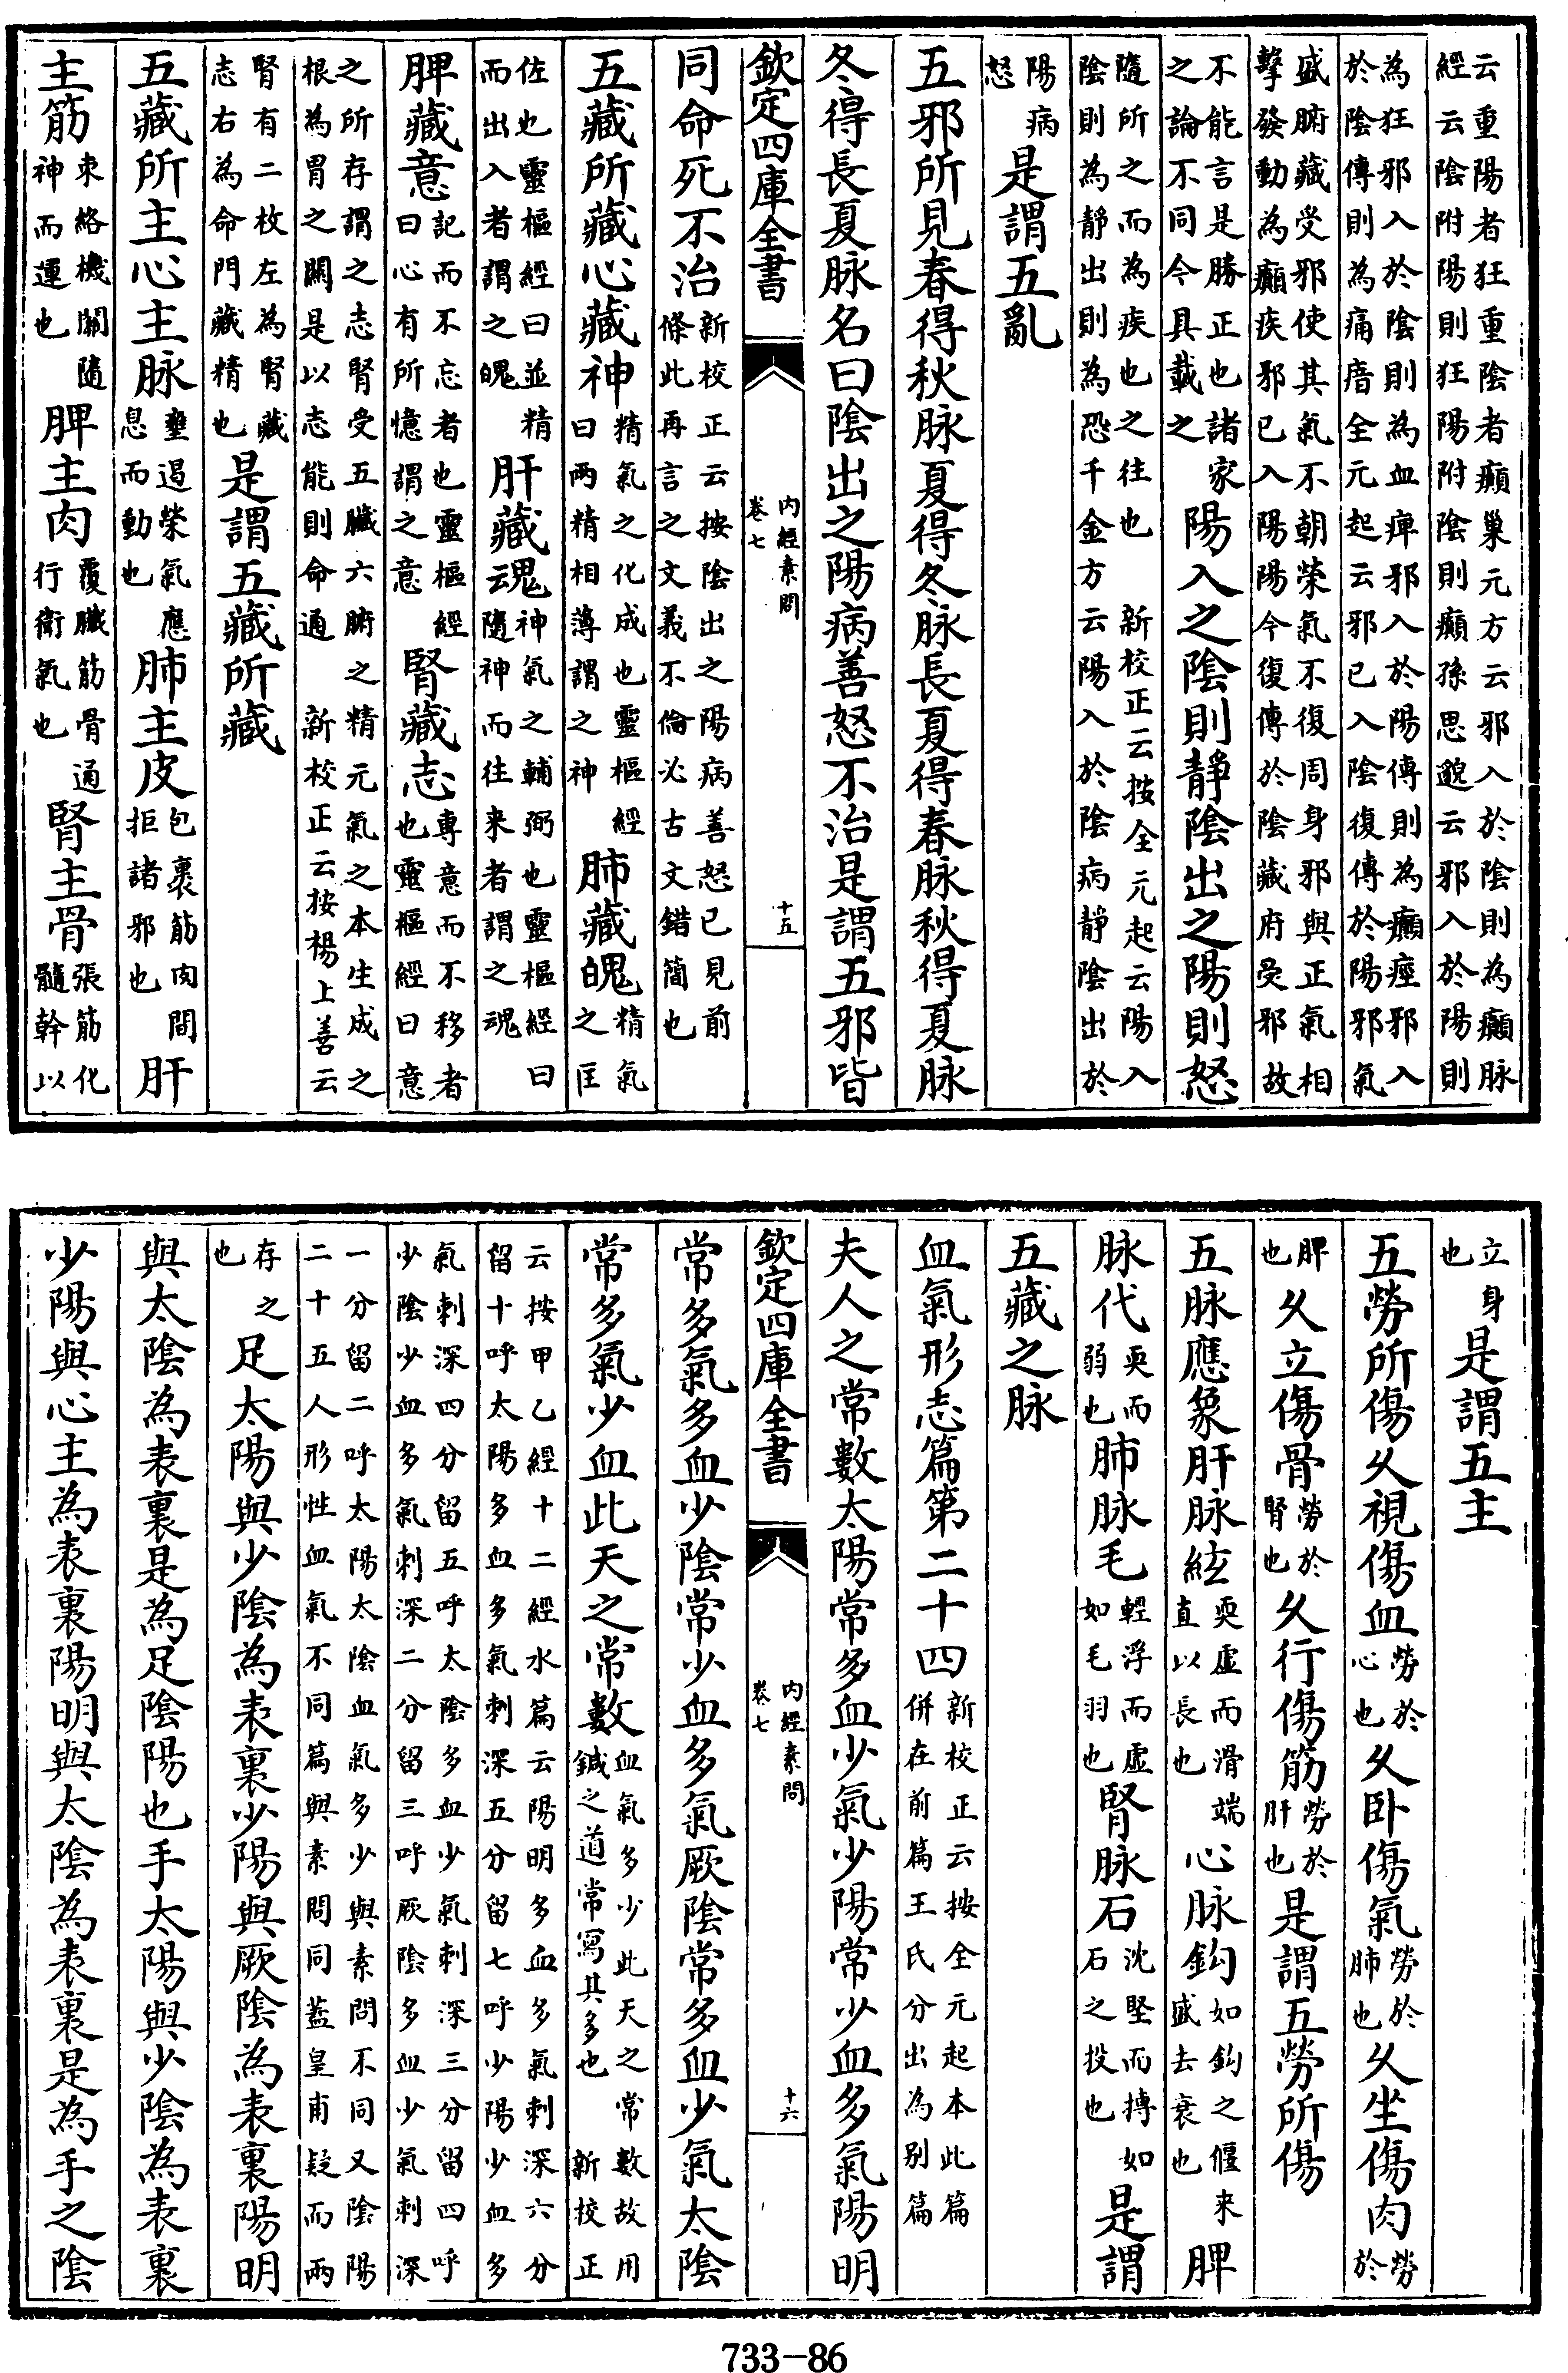 云重陽者狂重陰者癲巢元方云邪入於陰則為癲脉
經云陰附陽則狂陽附陰則癲孫思邈云邪入於陽則
為狂邪入於陰則為血痺邪入於陽傳則為癲痙邪入
於陰傳則為痛瘖全元起云邪已入陰復傳於陽邪氣
盛腑藏受邪使其氣不朝榮氣不復周身邪與正氣相
擊發動為癲疾邪已入陽陽今復傳於陰藏府受邪故
不能言是勝正也諸家之論不同今具載之陽入之陰則靜陰出之陽則怒
隨所之而為疾也之往也 新校正云按全元起云陽入
陰則為靜出則為恐千金方云陽入於陰病靜陰出於
陽病怒是謂五亂
五邪所見春得秋脉夏得冬脉長夏得春脉秋得夏脉
冬得長夏脉名曰陰出之陽病善怒不治是謂五邪皆
欽定四庫全書 內經素問 卷七 十五
同命死不治新校正云按陰出之陽病善怒已見前條此再言之文義不倫必古文錯簡也
五藏所藏心藏神精氣之化成也靈樞經曰兩精相薄謂之神肺藏魄精氣之匡
佐也靈樞經曰並精而出入者謂之魄肝藏魂神氣之輔弼也靈樞經曰隨神而往来者謂之魂
脾藏意記而不忘者也靈樞經曰心有所憶謂之意腎藏志專意而不移者也靈樞經曰意
之所存謂之志腎受五臟六腑之精元氣之本生成之
根為胃之關是以志能則命通 新校正云按楊上善云
腎有二枚左為腎藏志右為命門藏精也是謂五藏所藏
五藏所主心主脉壅遏榮氣應息而動也肺主皮包裹筋肉間拒諸邪也肝
主筋束絡機關隨神而運也脾主肉覆臟筋骨通行衛氣也腎主骨張筋化髓幹以
立身也是謂五主
五勞所傷久視傷血勞於心也久卧傷氣勞於肺也久坐傷肉勞於
脾也久立傷骨勞於腎也久行傷筋勞於肝也是謂五勞所傷
五脉應象肝脉絃耎虛而滑端直以長也心脉鈎如鈎之偃来盛去衰也脾
脉代耎而弱也肺脉毛輕浮而虛如毛羽也腎脉石沈堅而摶如石之投也是謂
五藏之脉
血氣形志篇第二十四新校正云按全元起本此篇併在前篇王氏分出為别篇
夫人之常數太陽常多血少氣少陽常少血多氣陽明
欽定四庫全書 內經素問 卷七 十六
常多氣多血少陰常少血多氣厥陰常多血少氣太陰
常多氣少血此天之常數血氣多少此天之常數故用鍼之道常寫其多也 新校正
云按甲乙經十二經水篇云陽明多血多氣刺深六分
留十呼太陽多血多氣刺深五分留七呼少陽少血多
氣刺深四分留五呼太陰多血少氣刺深三分留四呼
少陰少血多氣刺深二分留三呼厥陰多血少氣刺深
一分留二呼太陽太陰血氣多少與素問不同又陰陽
二十五人形性血氣不同篇與素問同蓋皇甫疑而兩
存之也足太陽與少陰為表裏少陽與厥陰為表裏陽明
與太陰為表裏是為足陰陽也手太陽與少陰為表裏
少陽與心主為表裏陽明與太陰為表裏是為手之陰
733-86